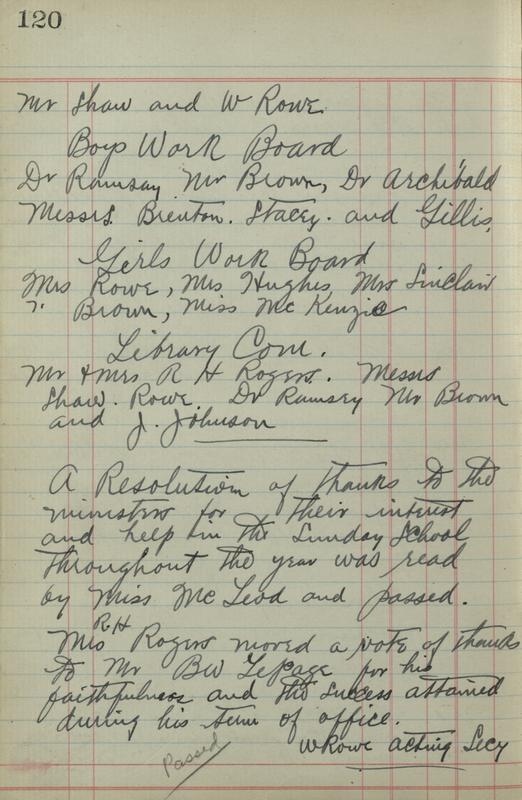 120
Mr Shaw and W Rowe.
Boys Work Board
Dr Ramsay Mr Brown, Dr Archibald
Messrs. Brenton. Stacey. and Gillis,
Girls Work Board
Mrs Rowe, Mrs Hughes, Mrs Sinclair
" Brown, Miss McKenzie
Library Com.
Mr & Mrs R H Rogers. Messrs
Shaw. Rowe. Dr Ramsey Mr Brown
and J. Johnson
A Resolution of thanks to the
ministers for their interest
and help in the Sunday School
throughout the year was read
by Miss McLeod and passed.
R H
Mrs Rogers moved a vote of thanks
to Mr BW Lepage for his
faithfulness and the success attained
during his term of office.
WRowe acting Secy
Passed